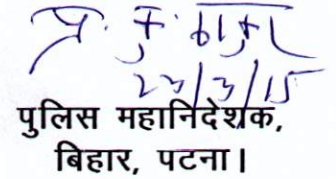 23/3/15
पुलिस महानिदेशक,
बिहार, पटना।